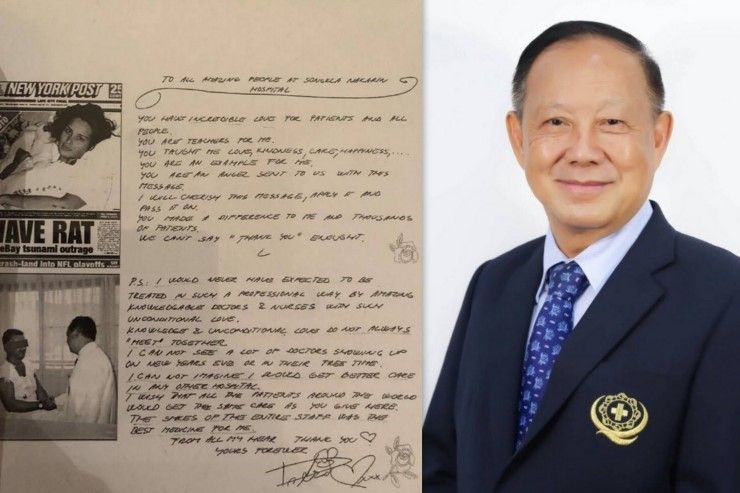 NEW YORK POST
25
LATE CITY FINAL
WAVE RAT
eBay tsunami outrage
crash-land into NFL playoffs
TO ALL AMAZING PEOPLE AT SONGKLA NAKARIN
HOSPITAL
YOU HAVE INCREDIBLE LOVE FOR PATIENTS AND ALL
PEOPLE.
YOU ARE TEACHERS FOR ME.
YOU TAUGHT ME LOVE, KINDNESS, CARE, HAPPINESS, ....
YOU ARE AN EXAMPLE FOR ME.
YOU ARE AN ANGEL SENT TO US WITH THIS
MESSAGE.
I WILL CHERISH THIS MESSAGE, APPLY IT AND
PASS IT ON.
YOU MADE A DIFFERENCE TO ME AND THOUSANDS
OF PATIENTS.
WE CAN'T SAY "THANK YOU" ENOUGHT.
P.S: I WOULD NEVER HAVE EXPECTED TO BE
TREATED IN SUCH A PROFESSIONAL WAY BY AMAZING
KNOWLEDGABLE DOCTORS & NURSES WITH SUCH
UNCONDITIONAL LOVE.
KNOWLEDGE & UNCONDITIONAL LOVE DO NOT ALWAYS
"MEET" TOGETHER
I CAN NOT SEE A LOT OF DOCTORS SHOWING UP
ON NEW YEARS EVE OR IN THEIR FREE TIME.
I CAN NOT IMAGINE I WOULD GET BETTER CARE
IN ANY OTHER HOSPITAL.
I WISH THAT ALL THE PATIENTS AROUND THE WORLD
WOULD GET THE SAME CARE AS YOU GIVE HERE.
THE SMILES OF THE ENTIRE STAFF WAS THE
BEST MEDICINE FOR ME.
FROM ALL MY HEAR THANK YOU
YOURS FOREVER